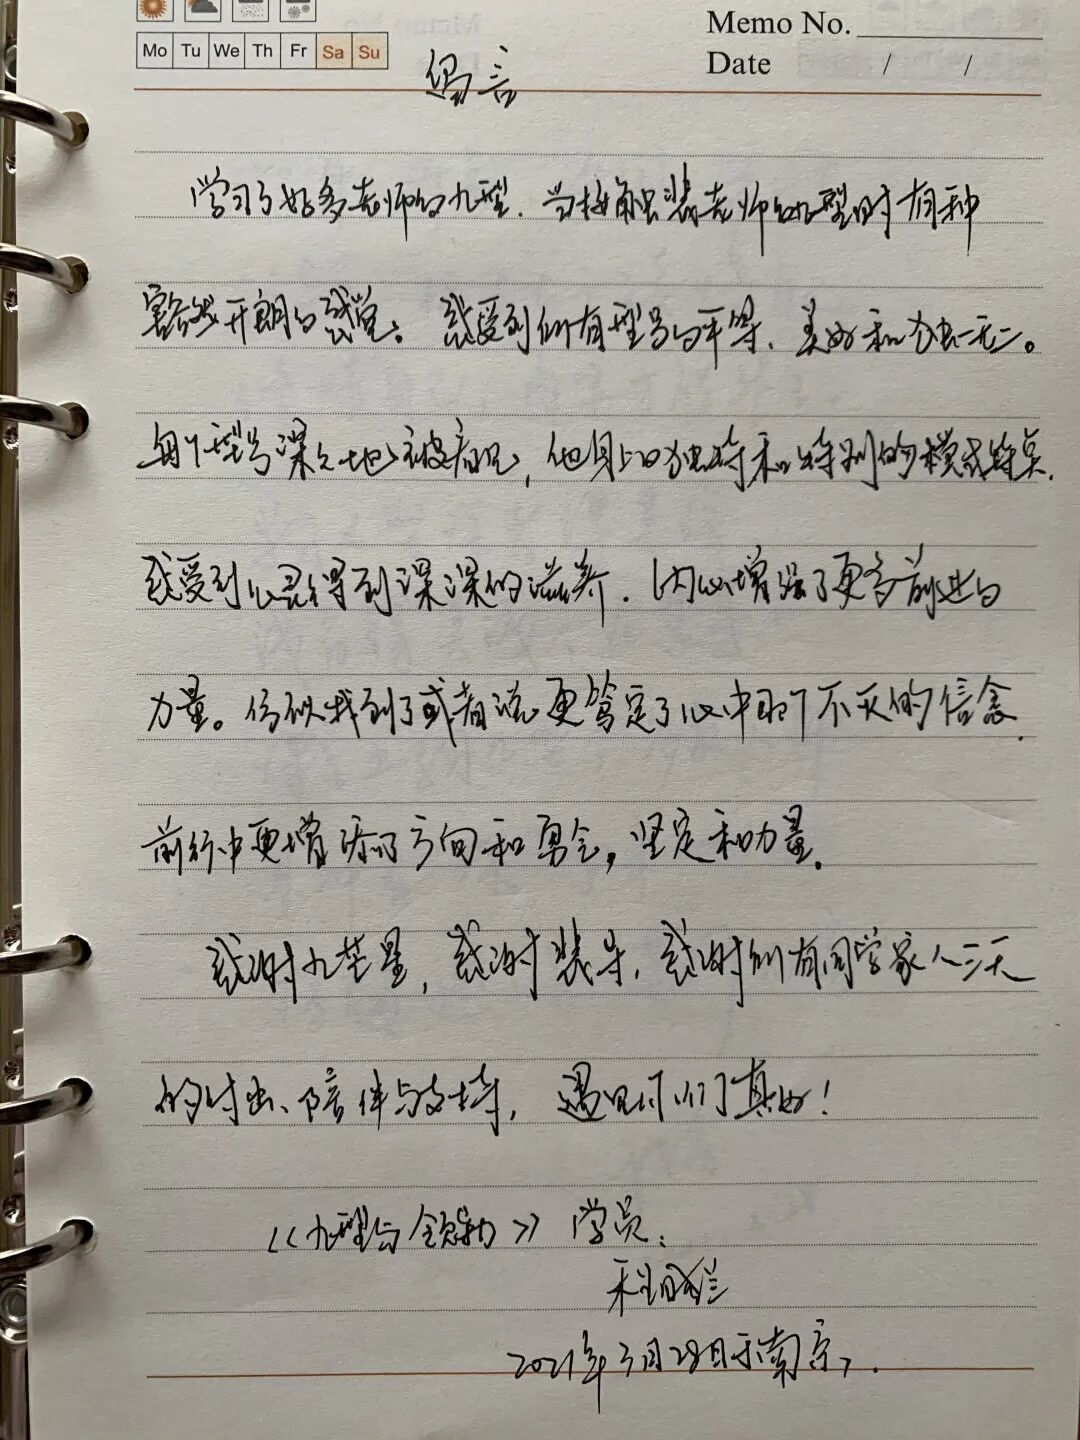 Mo Tu We Th Fr Sa Su
Memo No.
Date / /
留言
学习了好多老师的九型.当接触裴老师的九型时有种
豁然开朗的感觉。感受到所有型号的平等、美好和独一无二。
每个型号深深地被看见,他身上的独特和特别的模式特点.
感受到心灵得到深深的滋养.内心增强了更多前进的
力量。仿似找到了或者说更笃定了心中那个不灭的信念.
前行中更增添了方向和勇气,坚定和力量.
感谢九芒星,感谢裴导,感谢所有同学家人三天
的付出、陪伴与支持,遇见你们真好!
《九型与领导力》学员:
程
2021年3月28日于南京.